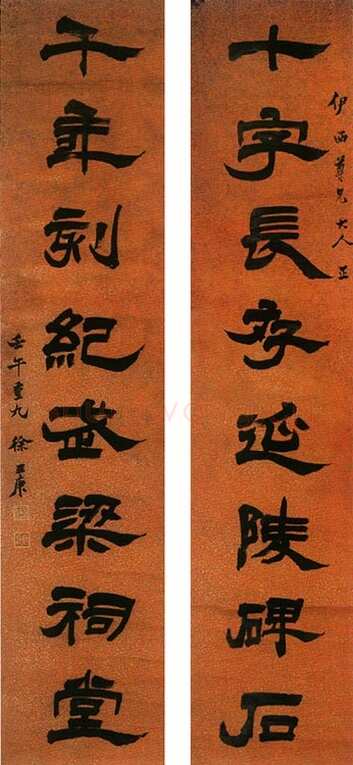 伊西尊兄大人正
十字長存延陵碑石
千年刻紀武梁祠堂
壬午重九 徐三庚